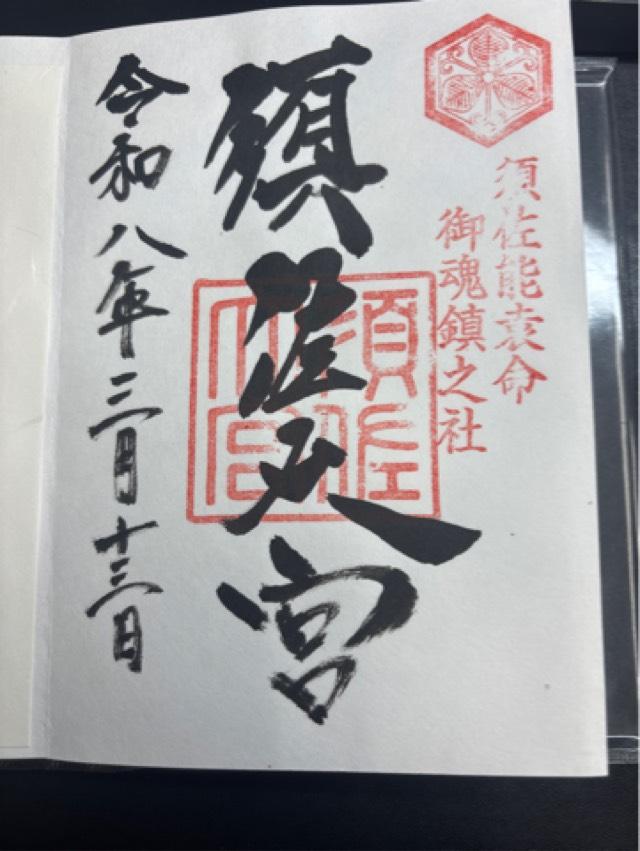 須佐能袁命
御魂鎮之社
須佐大宮
須佐
大宮
令和八年三月十三日